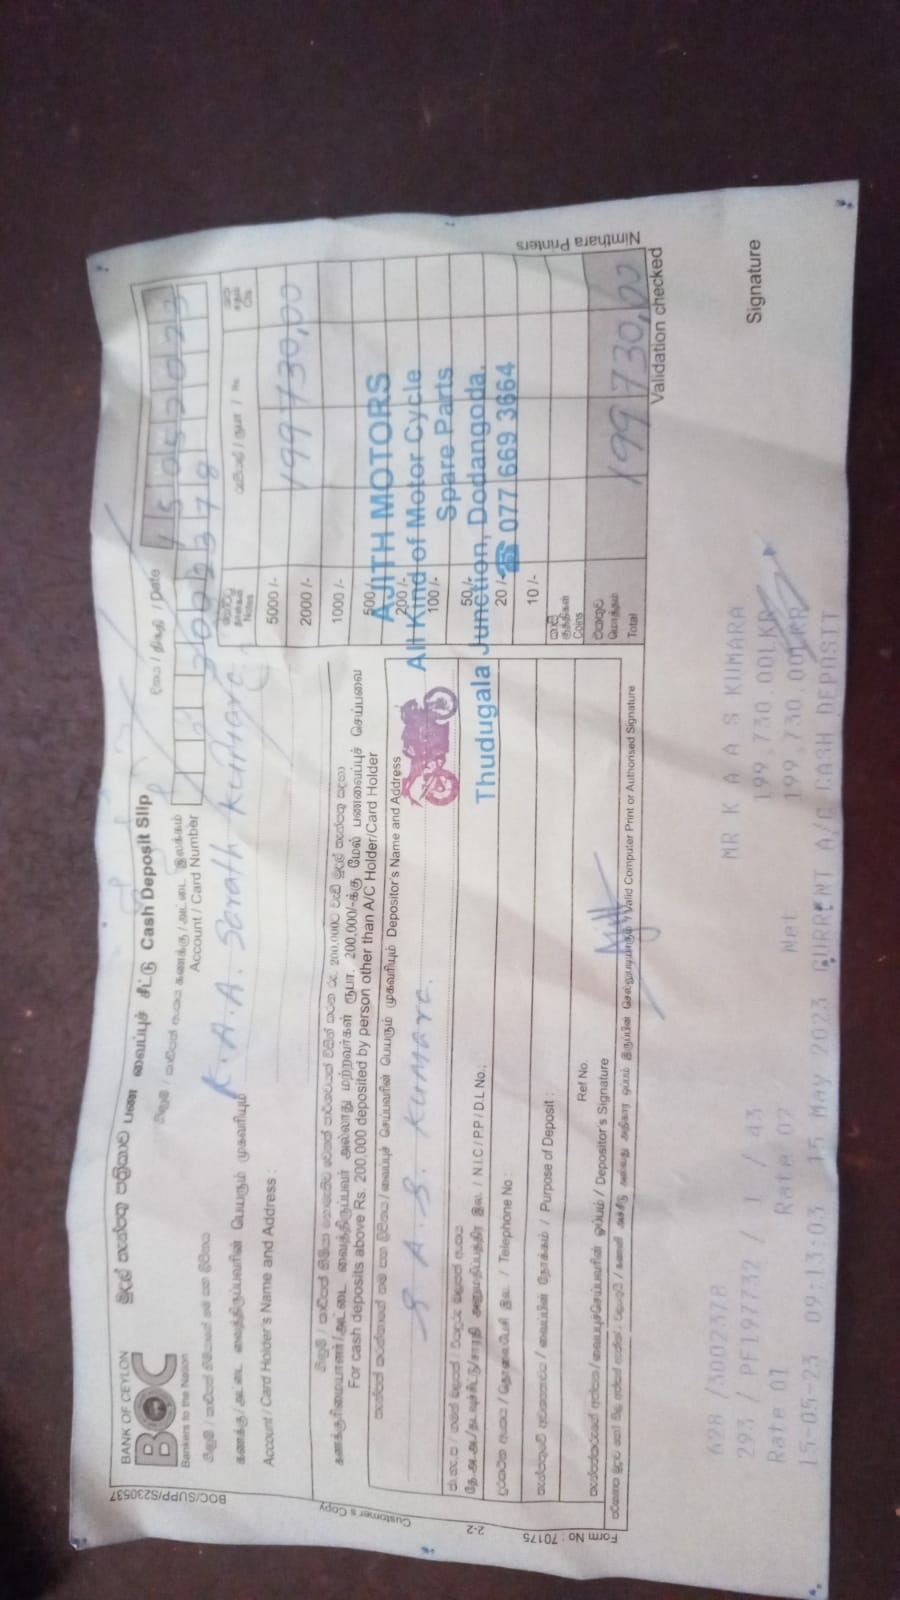 BOC/SUPP/S230537
BANK OF CEYLON
BOC
Bankers to the Nation
මුදල් තැන්පතු පත්‍රිකාව பண வைப்புச் சீட்டு Cash Deposit Slip
දිනය / திகதி / Date
15052023
கணக்கு / அட்டை இலக்கம்
Account / Card Number
3002378
கணக்கு / அட்டை வைத்திருப்பவரின் பெயரும் முகவரியும்
Account / Card Holder's Name and Address :
K.A.A. Sarath Kumara.
Notes
රුපියල් / ரூபா / Rs.
Cts.
5000 /-
2000 /-
199730,00
1000 /-
500 /-
200 /-
100 /-
50 /-
20 /-
10 /-
Coins
එකතුව
மொத்தம்
Total
199730,00
கணக்குரிமையாளர்/அட்டை வைத்திருப்பவர் அல்லாது மற்றவர்கள் ரூபா. 200,000/-க்கு மேல் பணவைப்புச் செய்பவை
For cash deposits above Rs. 200,000 deposited by person other than A/C Holder/Card Holder
வைப்புச் செய்பவரின் பெயரும் முகவரியும் Depositor's Name and Address
A. S. Kumara.
N.I.C / P.P / D.L No.:
දුරකථන අංකය / தொலைபேசி இல. / Telephone No :
வைப்பின் நோக்கம் / Purpose of Deposit :
Ref No.
வைப்புச்செய்பவரின் ஒப்பம் / Depositor's Signature
Valid Computer Print or Authorised Signature
AJITH MOTORS
All Kind of Motor Cycle
Spare Parts
Thudugala Junction, Dodangoda.
☎ 077 669 3664
Nimthara Printers
Validation checked
Signature
Customer's Copy
2-2
Form No : 70175
628 /3002378 MR K A A S KUMARA
293 / PF197732 / 1 / 43 199,730.00LKR
Rate 01 Rate 02 Net 199,730.00LKR
15-05-23 09:13:03 15 May 2023 CURRENT A/C CASH DEPOSIT